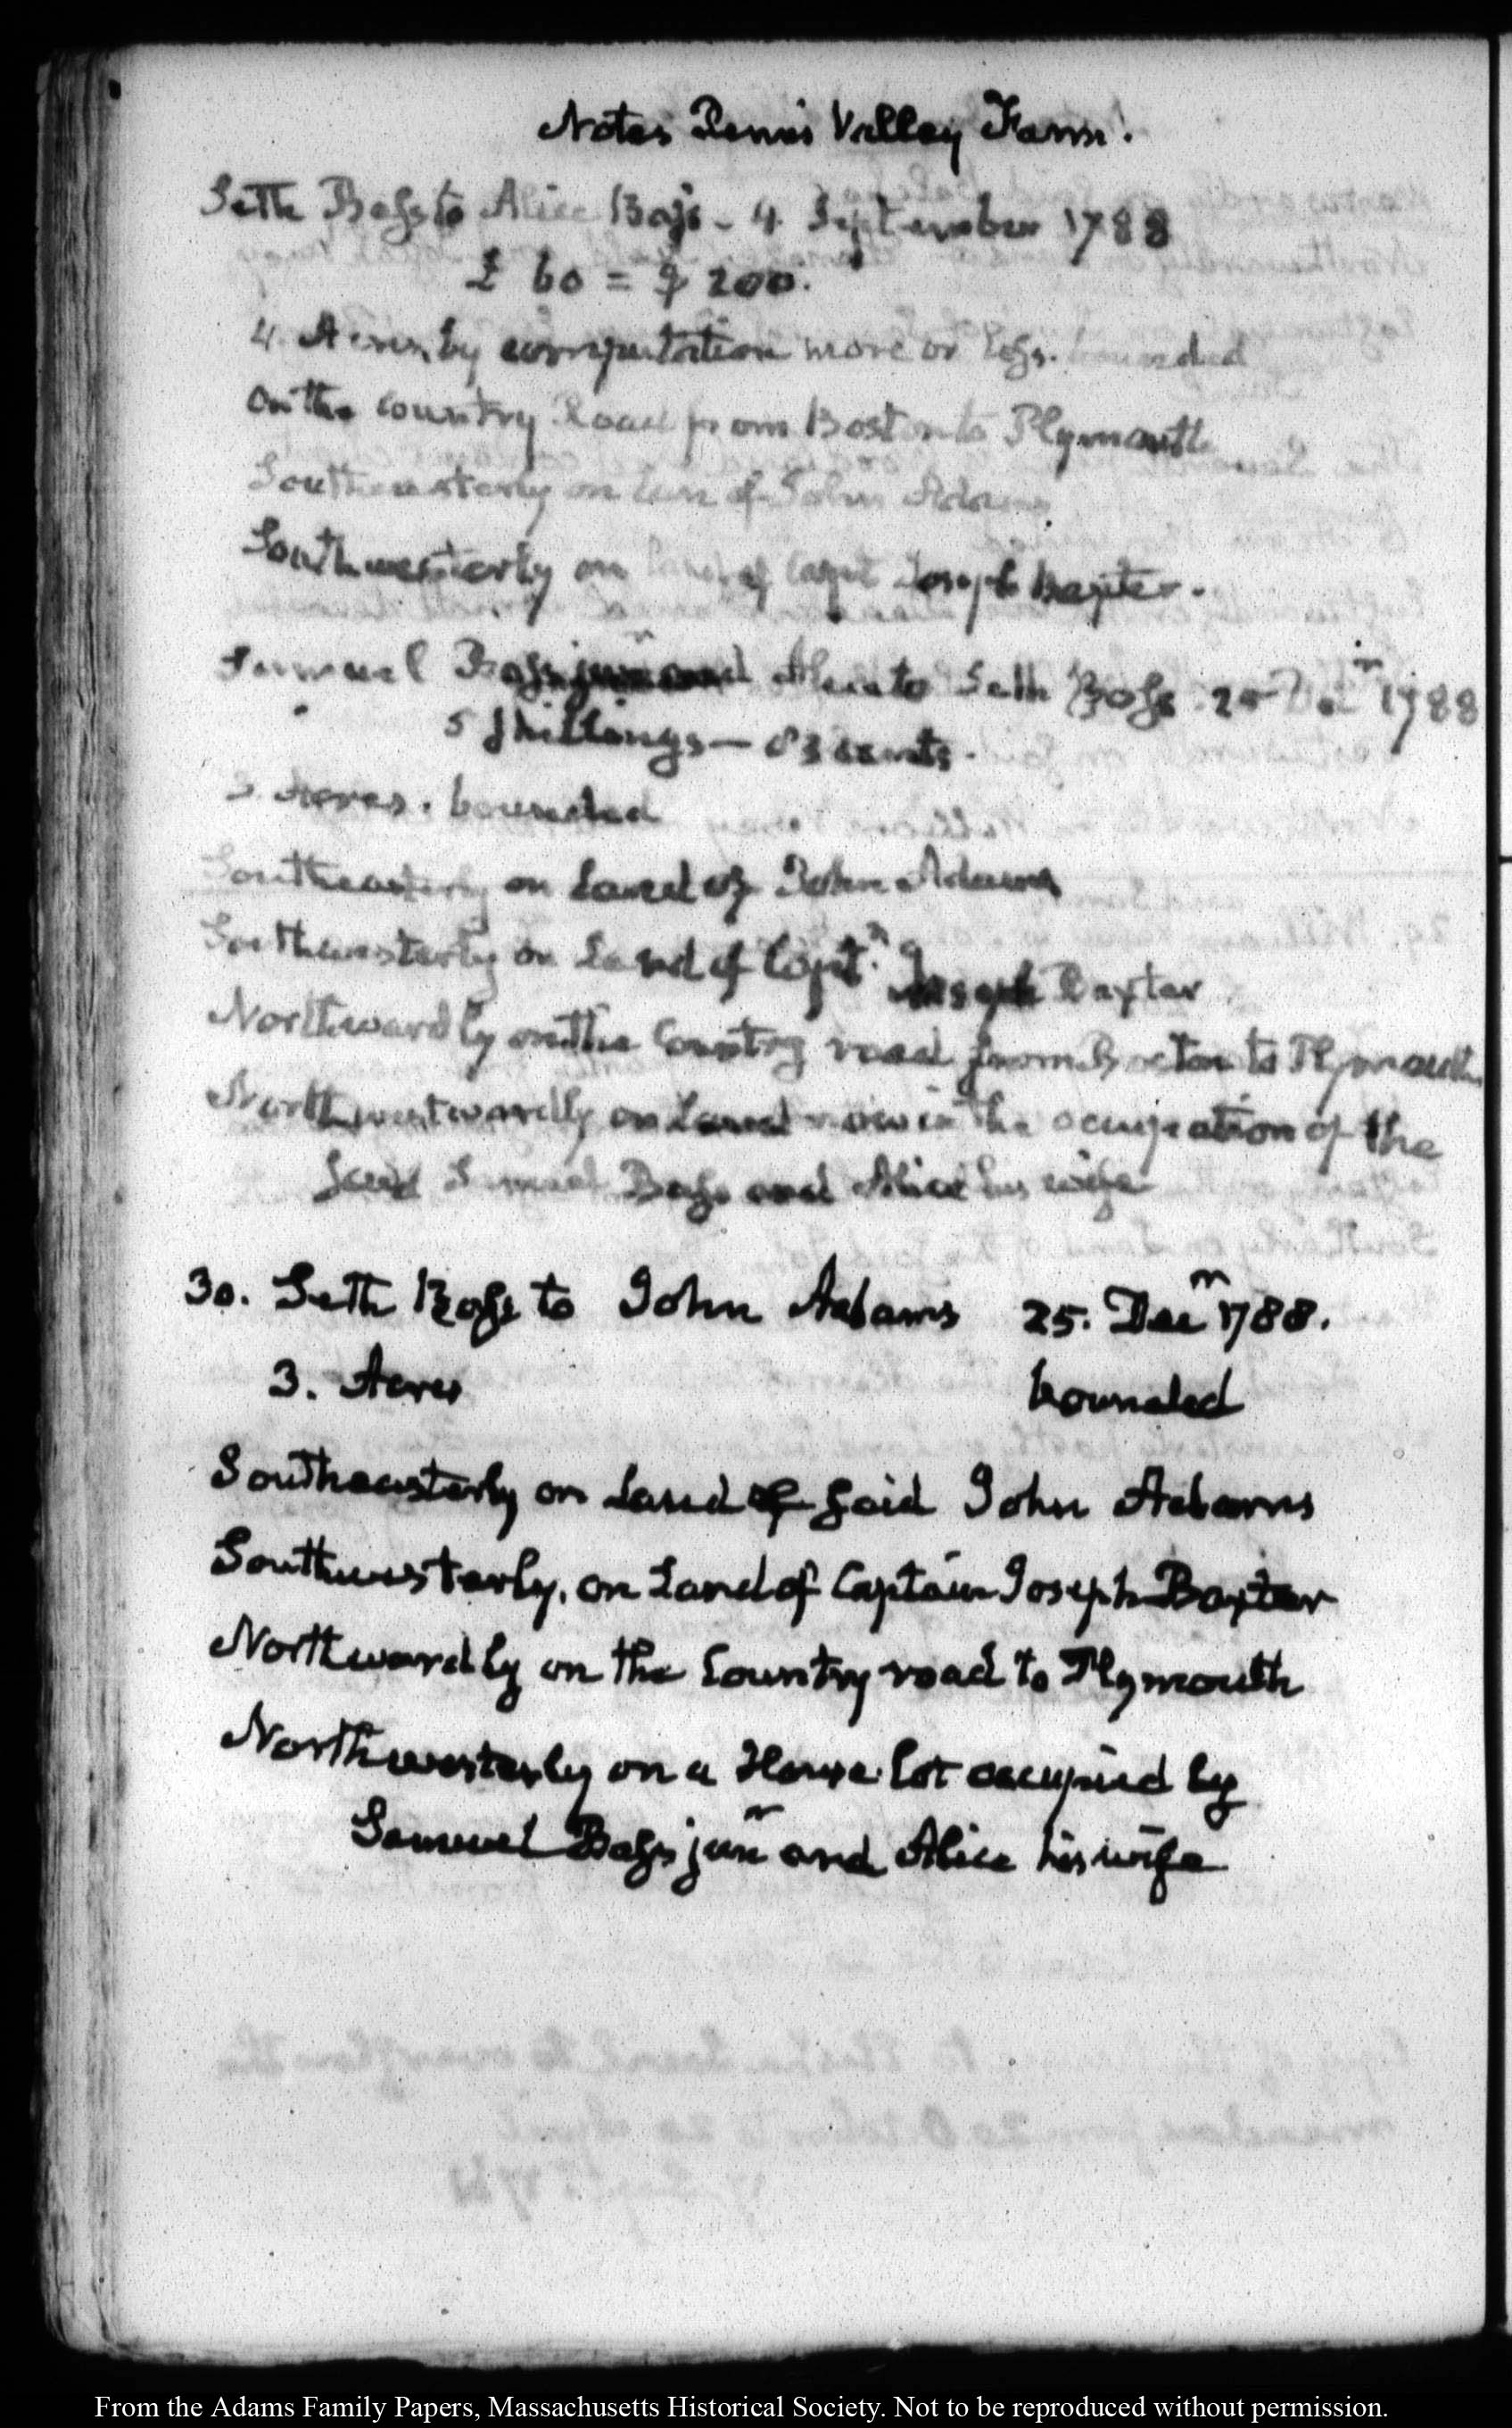 Notes Penn's Valley Farm.
Seth Bass to Alice Bass - 4 September 1788
£ 60 = $ 200.
4. Acres by computation more or less. bounded
on the country Road from Boston to Plymouth
Southeasterly on Lan of John Adams
Southwesterly on land of Capt Joseph Baxter.
Samuel Bass junr and Alice to Seth Bass 25 Decr 1788
5 shillings — 83 cents.
3. Acres. bounded
Southeasterly on Land of John Adams
Southwesterly on Land of Captn. Joseph Baxter
Northwardly on the Country road from Boston to Plymouth
Northwestwardly on Land now in the occupation of the
said Samuel Bass and Alice his wife
30. Seth Bass to John Adams 25. Decr 1788.
3. Acres bounded
Southeasterly on Land of said John Adams
Southwesterly, on Land of Captain Joseph Baxter
Northwardly on the Country road to Plymouth
Northwesterly on a House lot occupied by
Samuel Bass junr and Alice his wife
From the Adams Family Papers, Massachusetts Historical Society. Not to be reproduced without permission.